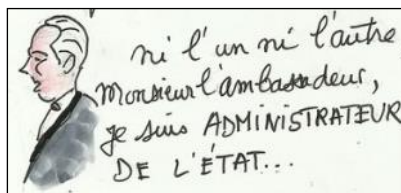 ni l'un ni l'autre
Monsieur l'ambassadeur,
je suis ADMINISTRATEUR
DE L'ÉTAT...